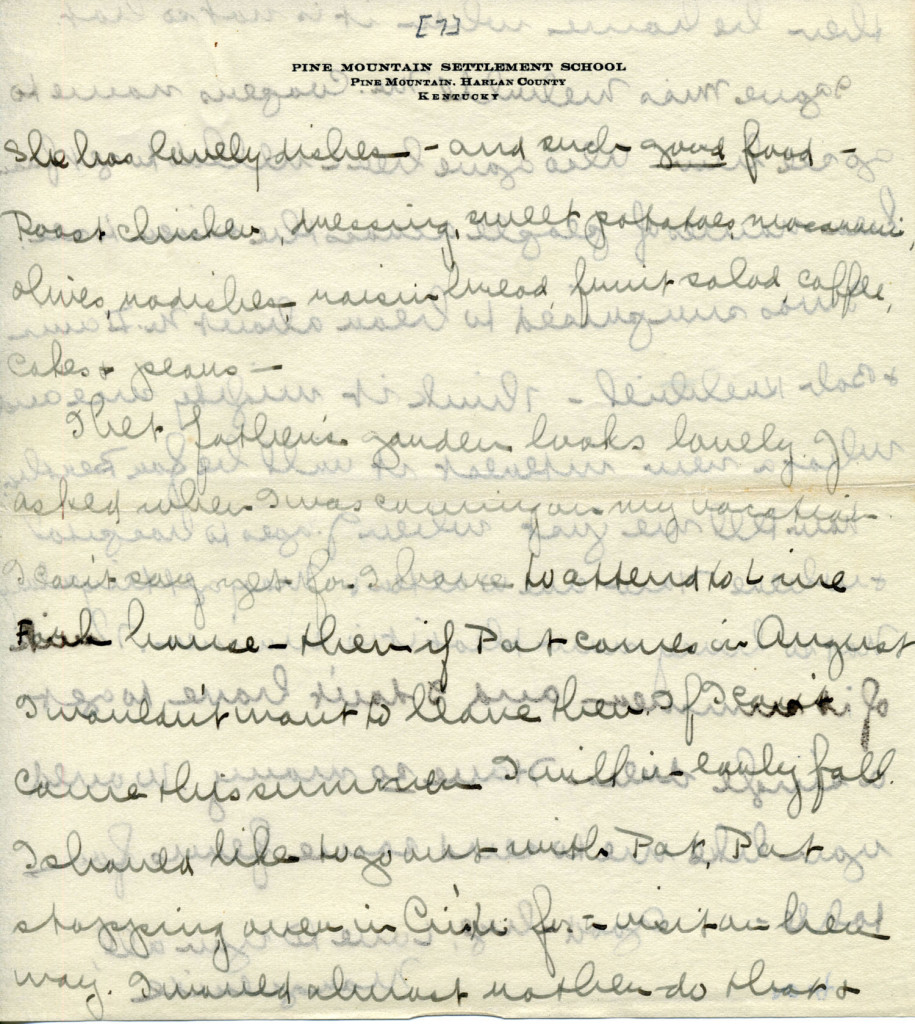 [7]
PINE MOUNTAIN SETTLEMENT SCHOOL
PINE MOUNTAIN, HARLAN COUNTY
KENTUCKY
She has lovely dishes - and such good food -
Roast chicken, dressing, sweet potatoes, macaroni,
olives, radishes, raisin bread, fruit salad, coffee,
cakes & pears -
I bet father's garden looks lovely. J.
asked when I was coming on my vacation.
I can't say yet for I have to attend to Line
Fork house - then if Pat comes in August
I wouldn't want to leave then. If I can't
come this summer I will in early fall.
I should like to go out with Pat, Pat
stopping over in Cin'ti for - visit on her
way. I would almost rather do that &